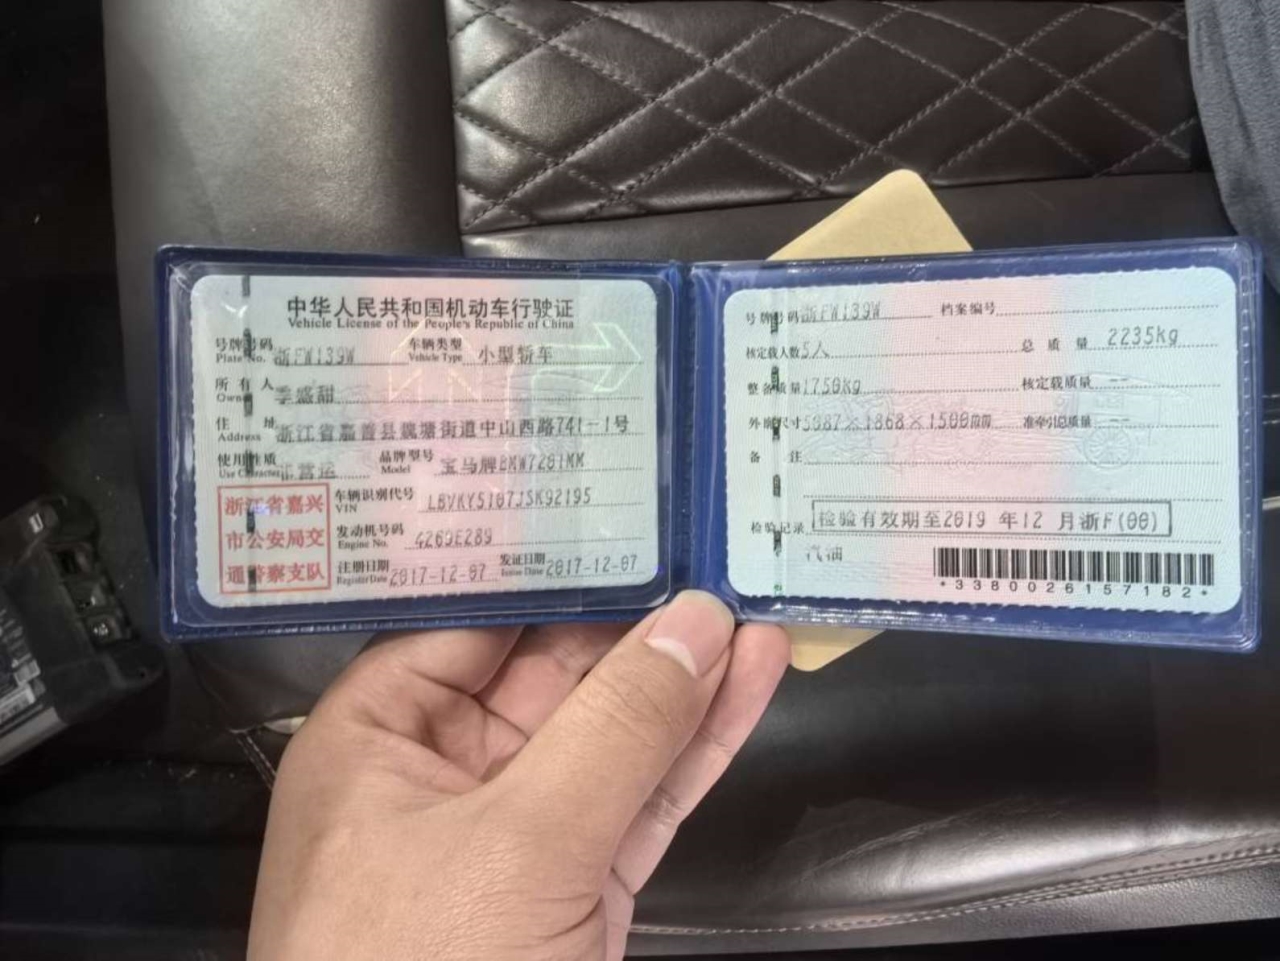 中华人民共和国机动车行驶证
Vehicle License of the People's Republic of China
号牌号码 浙FW139W 车辆类型 小型轿车
Plate No. Vehicle Type
所有人 季盛甜
Owner
住址 浙江省嘉善县魏塘街道中山西路741-1号
Address
使用性质 非营运 品牌型号 宝马牌BMW7201MM
Use Character Model
浙江省嘉兴
市公安局交
通警察支队
车辆识别代号 LBVKY5107JSK92195
VIN
发动机号码 4269E289
Engine No.
注册日期 2017-12-07 发证日期 2017-12-07
Register Date Issue Date
号牌号码 浙FW139W 档案编号
核定载人数 5人 总质量 2235kg
整备质量 1750kg 核定载质量 --
外廓尺寸 5087×1868×1500mm 准牵引总质量 --
备注
检验记录 检验有效期至2019年12月浙F(00)
汽油
*3380026157182*